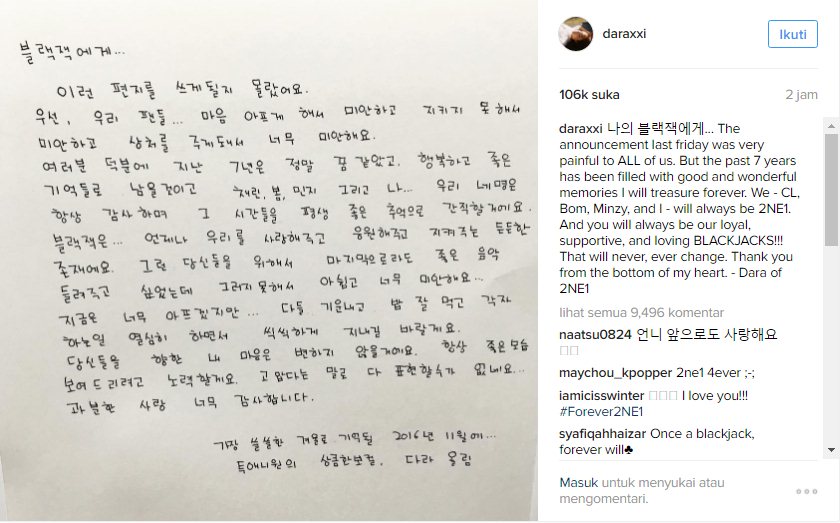 블랙잭에게...
이런 편지를 쓰게될지 몰랐어요.
우선, 우리 팬들... 마음 아프게 해서 미안하고 지키지 못해서
미안하고 상처를 주게돼서 너무 미안해요.
여러분 덕분에 지난 7년은 정말 꿈 같았고, 행복하고 좋은
기억들로 남을것이고 채린, 봄, 민지 그리고 나... 우리 네명은
항상 감사하며 그 시간들을 평생 좋은 추억으로 간직할거에요.
블랙잭은... 언제나 우리를 사랑해주고 응원해주고 지켜주는 든든한
존재에요. 그런 당신들을 위해서 마지막으로라도 좋은 음악
들려주고 싶었는데 그러지못해서 아쉽고 너무 미안해요...
지금은 너무 아프겠지만... 다들 기운내고 밥 잘 먹고 각자
하는일 열심히 하면서 씩씩하게 지내길 바랄게요.
당신들을 향한 내 마음은 변하지 않을거에요. 항상 좋은모습
보여 드리려고 노력할게요. 고맙다는 말로 다 표현할수가 없네요...
과분한 사랑 너무 감사합니다.
가장 쓸쓸한 겨울로 기억될 2016년 11월에...
투애니원의 상큼한보컬. 다라 올림
daraxxi
Ikuti
106k suka
2 jam
daraxxi 나의 블랙잭에게... The
announcement last friday was very
painful to ALL of us. But the past 7 years
has been filled with good and wonderful
memories I will treasure forever. We - CL,
Bom, Minzy, and I - will always be 2NE1.
And you will always be our loyal,
supportive, and loving BLACKJACKS!!!
That will never, ever change. Thank you
from the bottom of my heart. - Dara of
2NE1
lihat semua 9,496 komentar
naatsu0824 언니 앞으로도 사랑해요
maychou_kpopper 2ne1 4ever ;-;
iamicisswinter I love you!!!
#Forever2NE1
syafiqahhaizar Once a blackjack,
forever will♣
Masuk untuk menyukai atau
mengomentari.